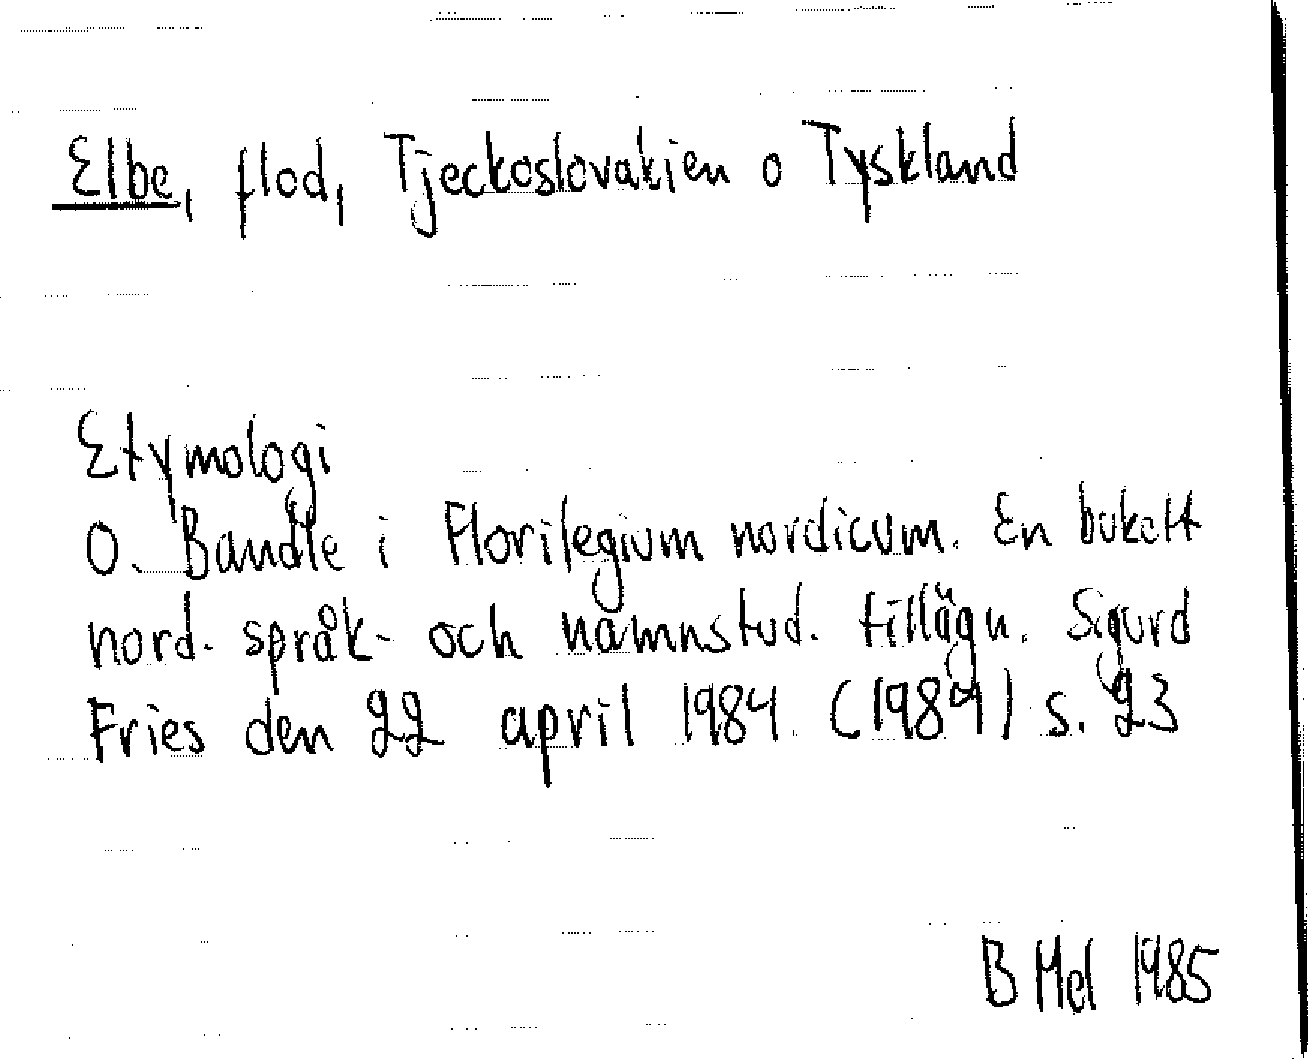 Elbe, flod, Tjeckoslovakien o Tyskland
Etymologi
O. Bandle i Florilegium nordicum. En bukett
nord. språk- och namnstud. tillägn. Sigurd
Fries den 22 april 1984 (1984) s. 23
B Mel 1985